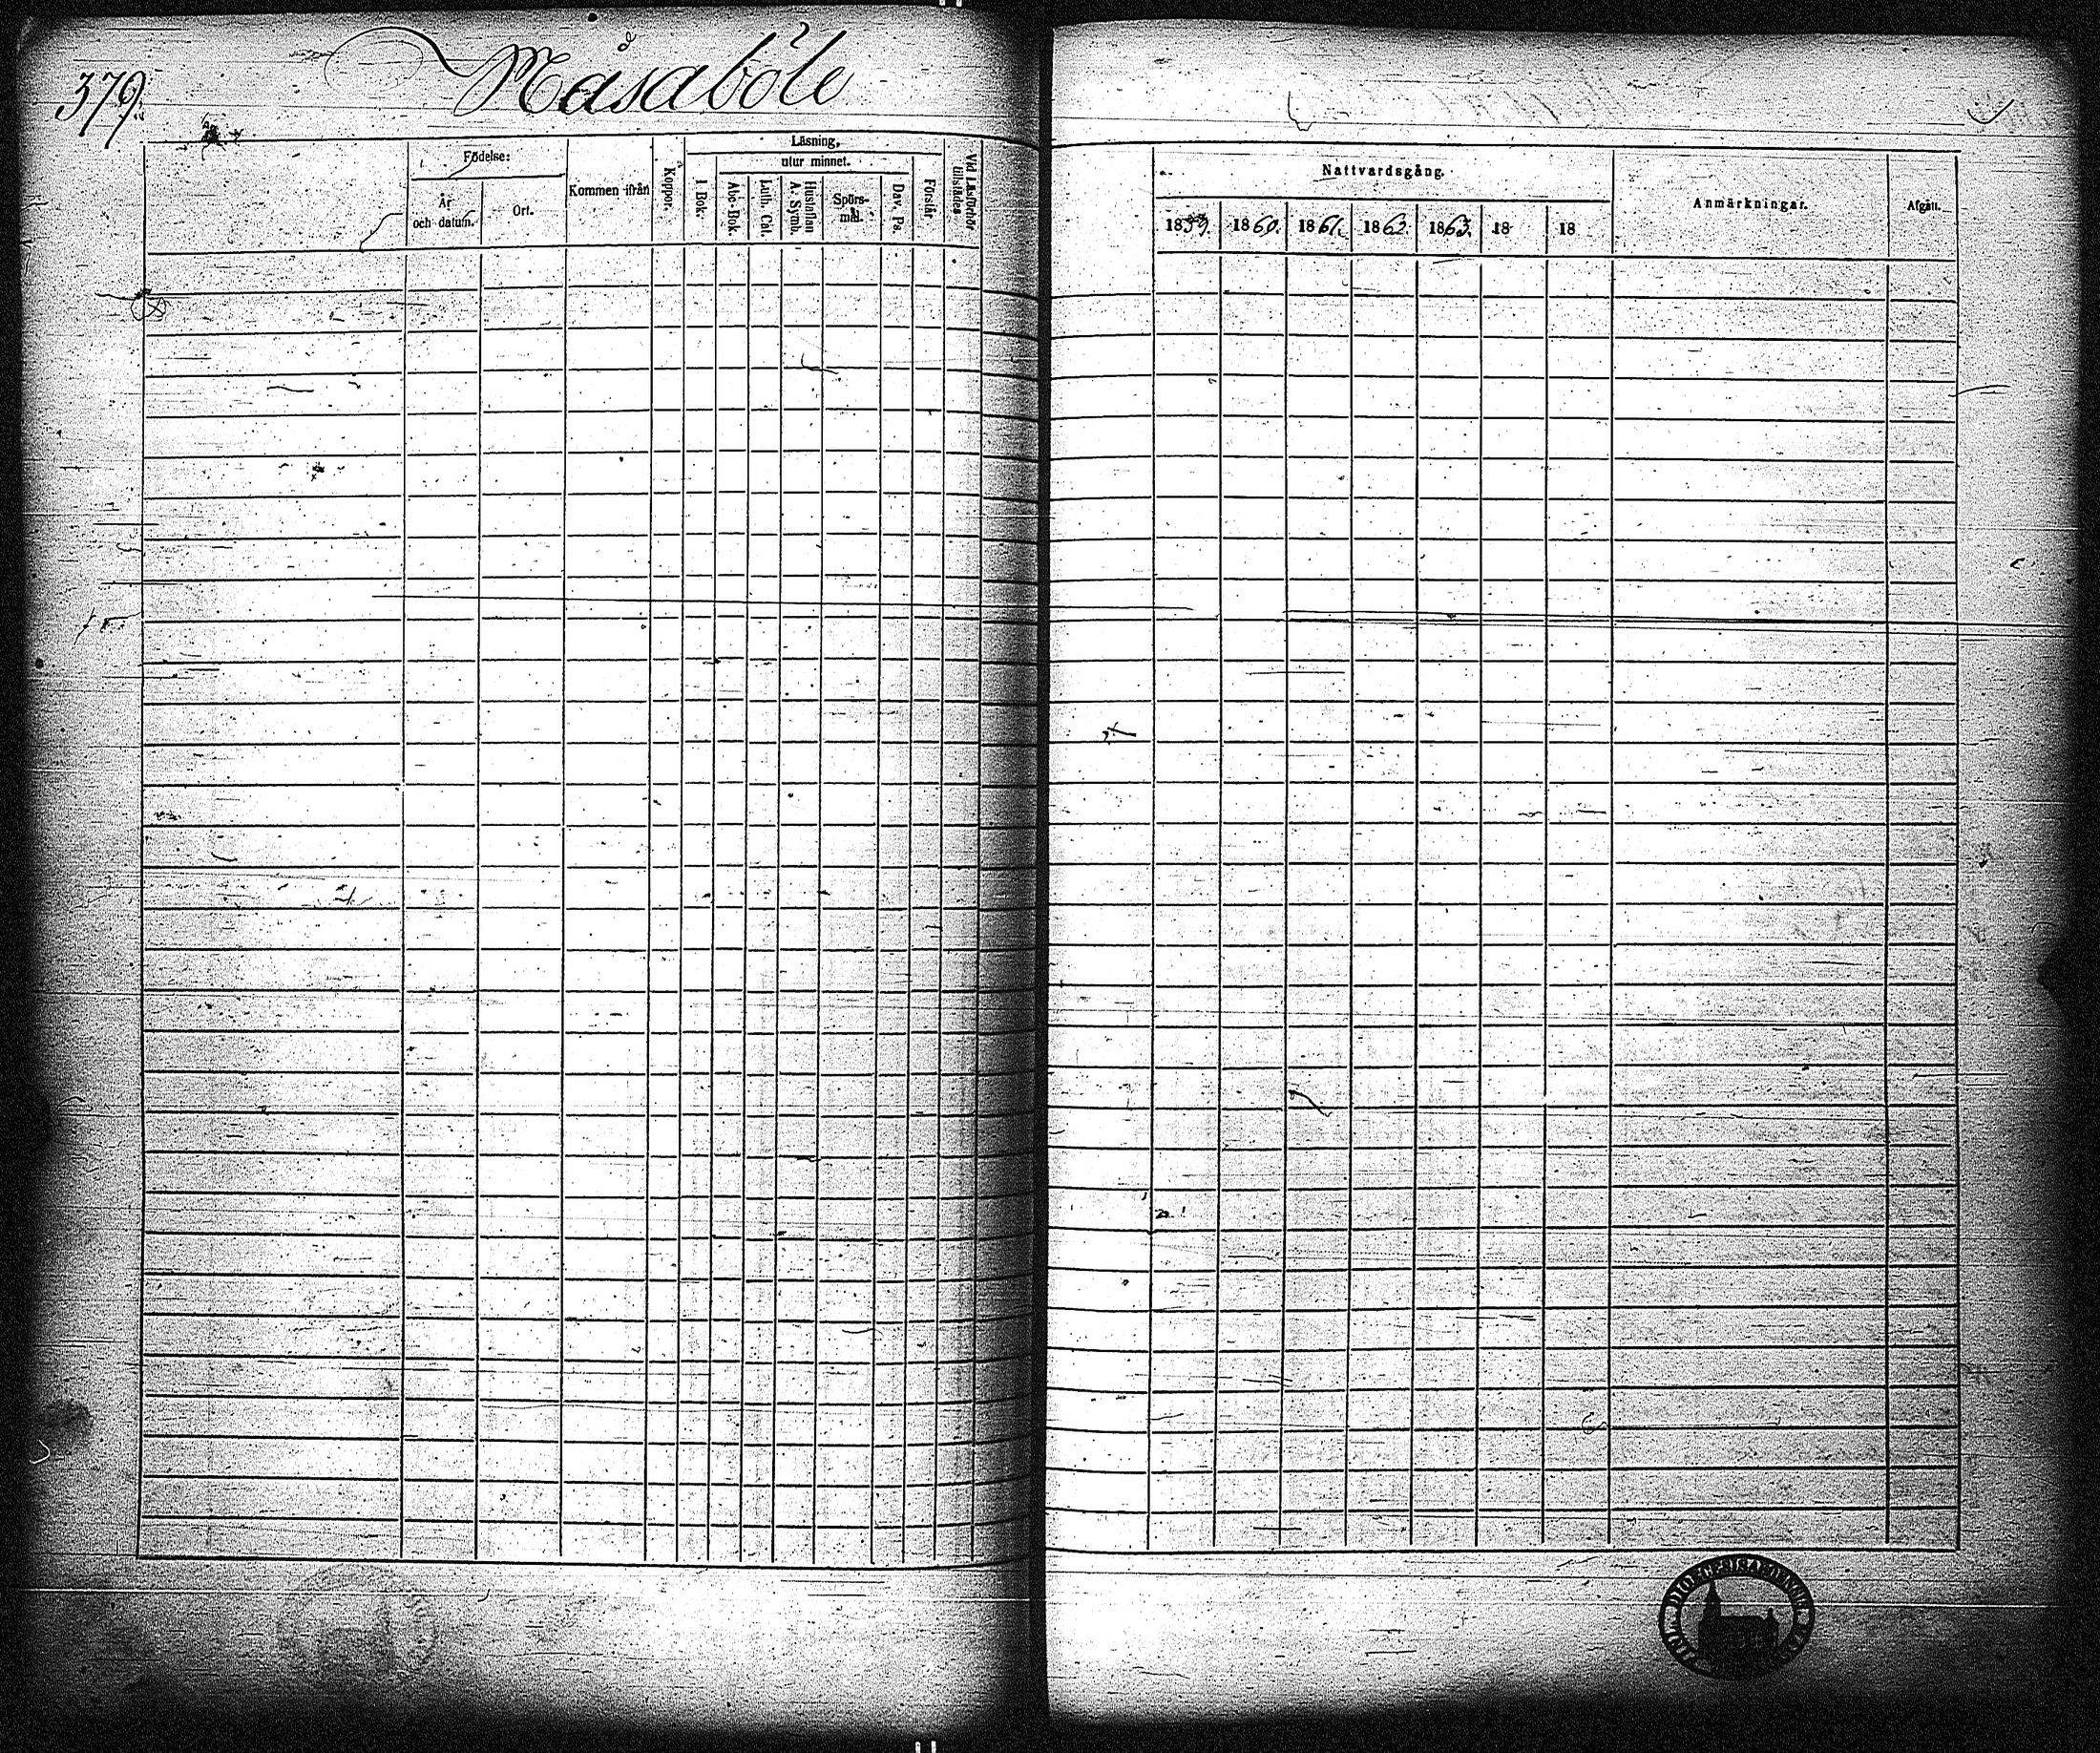 379.
Måsaböle
Födelse:
År
och datum.
Ort.
Kommen ifrån
Koppor.
Läsning,
utur minnet.
I Bok.
Abc-Bok.
Luth. Cat.
Hustaflan
A. Symb.
Spörs-
mål.
Dav. Ps.
Förstår.
Vid Läsförhör
tillstädes
Nattvardsgång.
1859.
1860.
1861.
1862.
1863.
18
18
Anmärkningar.
Afgått.